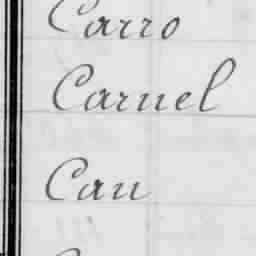 Carro
Caruel
Cau